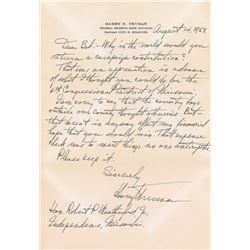 HARRY S. TRUMAN
FEDERAL RESERVE BANK BUILDING
KANSAS CITY 6, MISSOURI
August 14, 1958
Dear Bob:- Why in the world would you
return a campaign contribution?
That was an appreciation in advance
of what I thought you could do for the
4th Congressional District of Missouri.
I am sorry to say that the country boys
outside our county thought otherwise. But
that doesn't in any way that my financial
hope that you would win. That expense
check was to meet things no one anticipates
Please keep it.
Sincerely
Harry Truman
Hon. Robert P. Weatherford Jr.
Independence, Missouri